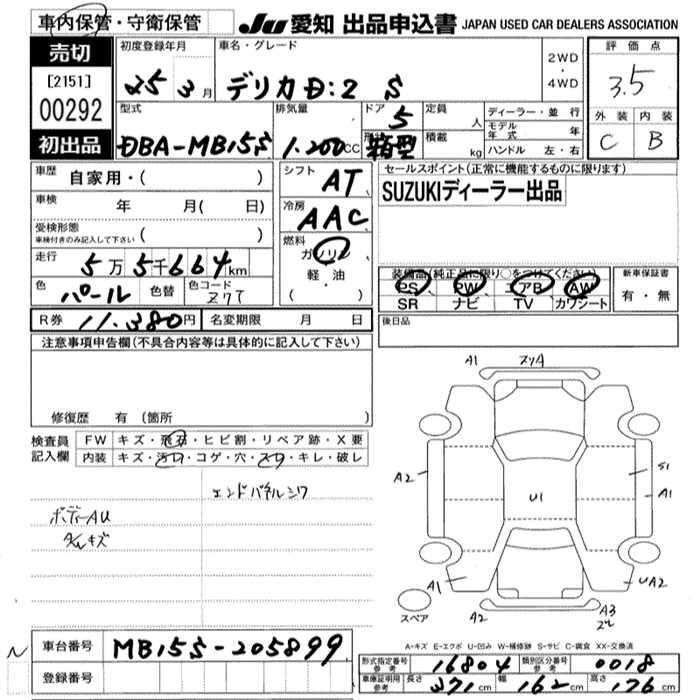 車内保管・守衛保管
JU 愛知 出品申込書 JAPAN USED CAR DEALERS ASSOCIATION
売切
[2151]
00292
初出品
初度登録年月
25 3月
車名・グレード
デリカD:2 S
2WD
・
4WD
評価点
3.5
外装 内装
C B
型式
DBA-MB15S
排気量
1.200cc
ドア 5
形状 箱型
定員 人
積載 kg
ディーラー・並行
モデル年式 年
ハンドル 左・右
車歴 自家用・( )
車検 年 月( 日)
受検形態
車検付きのみ記入して下さい ( )
走行 5万5千664km
色 パール 色替 色コード Z7T
シフト AT
冷房 AAC
燃料
ガソリン
・
軽・油
・( )
セールスポイント(正常に機能するものに限ります)
SUZUKIディーラー出品
装備品(純正品に限り○をつけてください)
PS PW エアB AW
SR ナビ TV カワシート
新車保証書
有・無
R券 11.380円 名変期限 月 日
後日品
注意事項申告欄(不具合内容等は具体的に記入して下さい)
修復歴 有(箇所
検査員記入欄
FW キズ・飛石・ヒビ割・リペア跡・X要
内装 キズ・汚れ・コゲ・穴・スレ・キレ・破レ
エンドパネルシワ
ボディーAU
キズ
A1
スリ4
A2
S1
A1
U1
A1
UA2
A2
A3
スペア
A-キズ E-エクボ U-凹み W-補修跡 S-サビ C-腐食 XX-交換済
車台番号 MB15S-205899
登録番号
形式指定番号 参考 16804 類別区分番号 参考 0018
車庫証明用 参考 長さ 371cm 幅 162cm 高さ 176cm